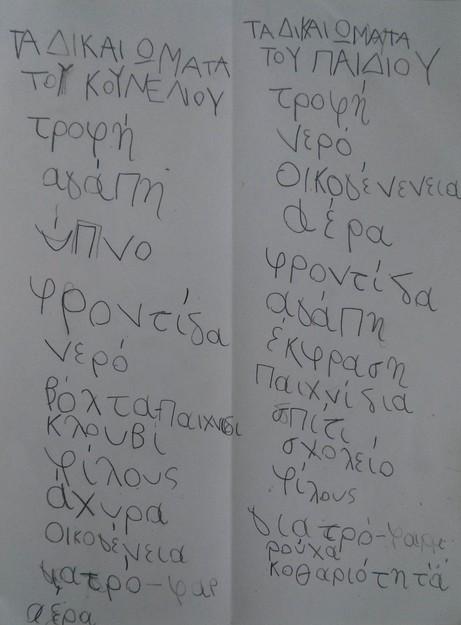 ΤΑ ΔΙΚΑΙΩΜΑΤΑ
ΤΟΥ ΚΟΥΝΕΛΙΟΥ
τροφή
αγάπη
ύπνο
φροντίδα
νερό
βόλτα-παιχνίδι
κλουβί
φίλους
άχυρα
οικογένεια
γιατρό-φαρ
αέρα
ΤΑ ΔΙΚΑΙΩΜΑΤΑ
ΤΟΥ ΠΑΙΔΙΟΥ
τροφή
νερό
οικογένενεια
αέρα
φροντίδα
αγάπη
έκφραση
παιχνίδια
σπίτι
σχολείο
φίλους
γιατρό-φαρμ
ρούχα
κοθαριότητα